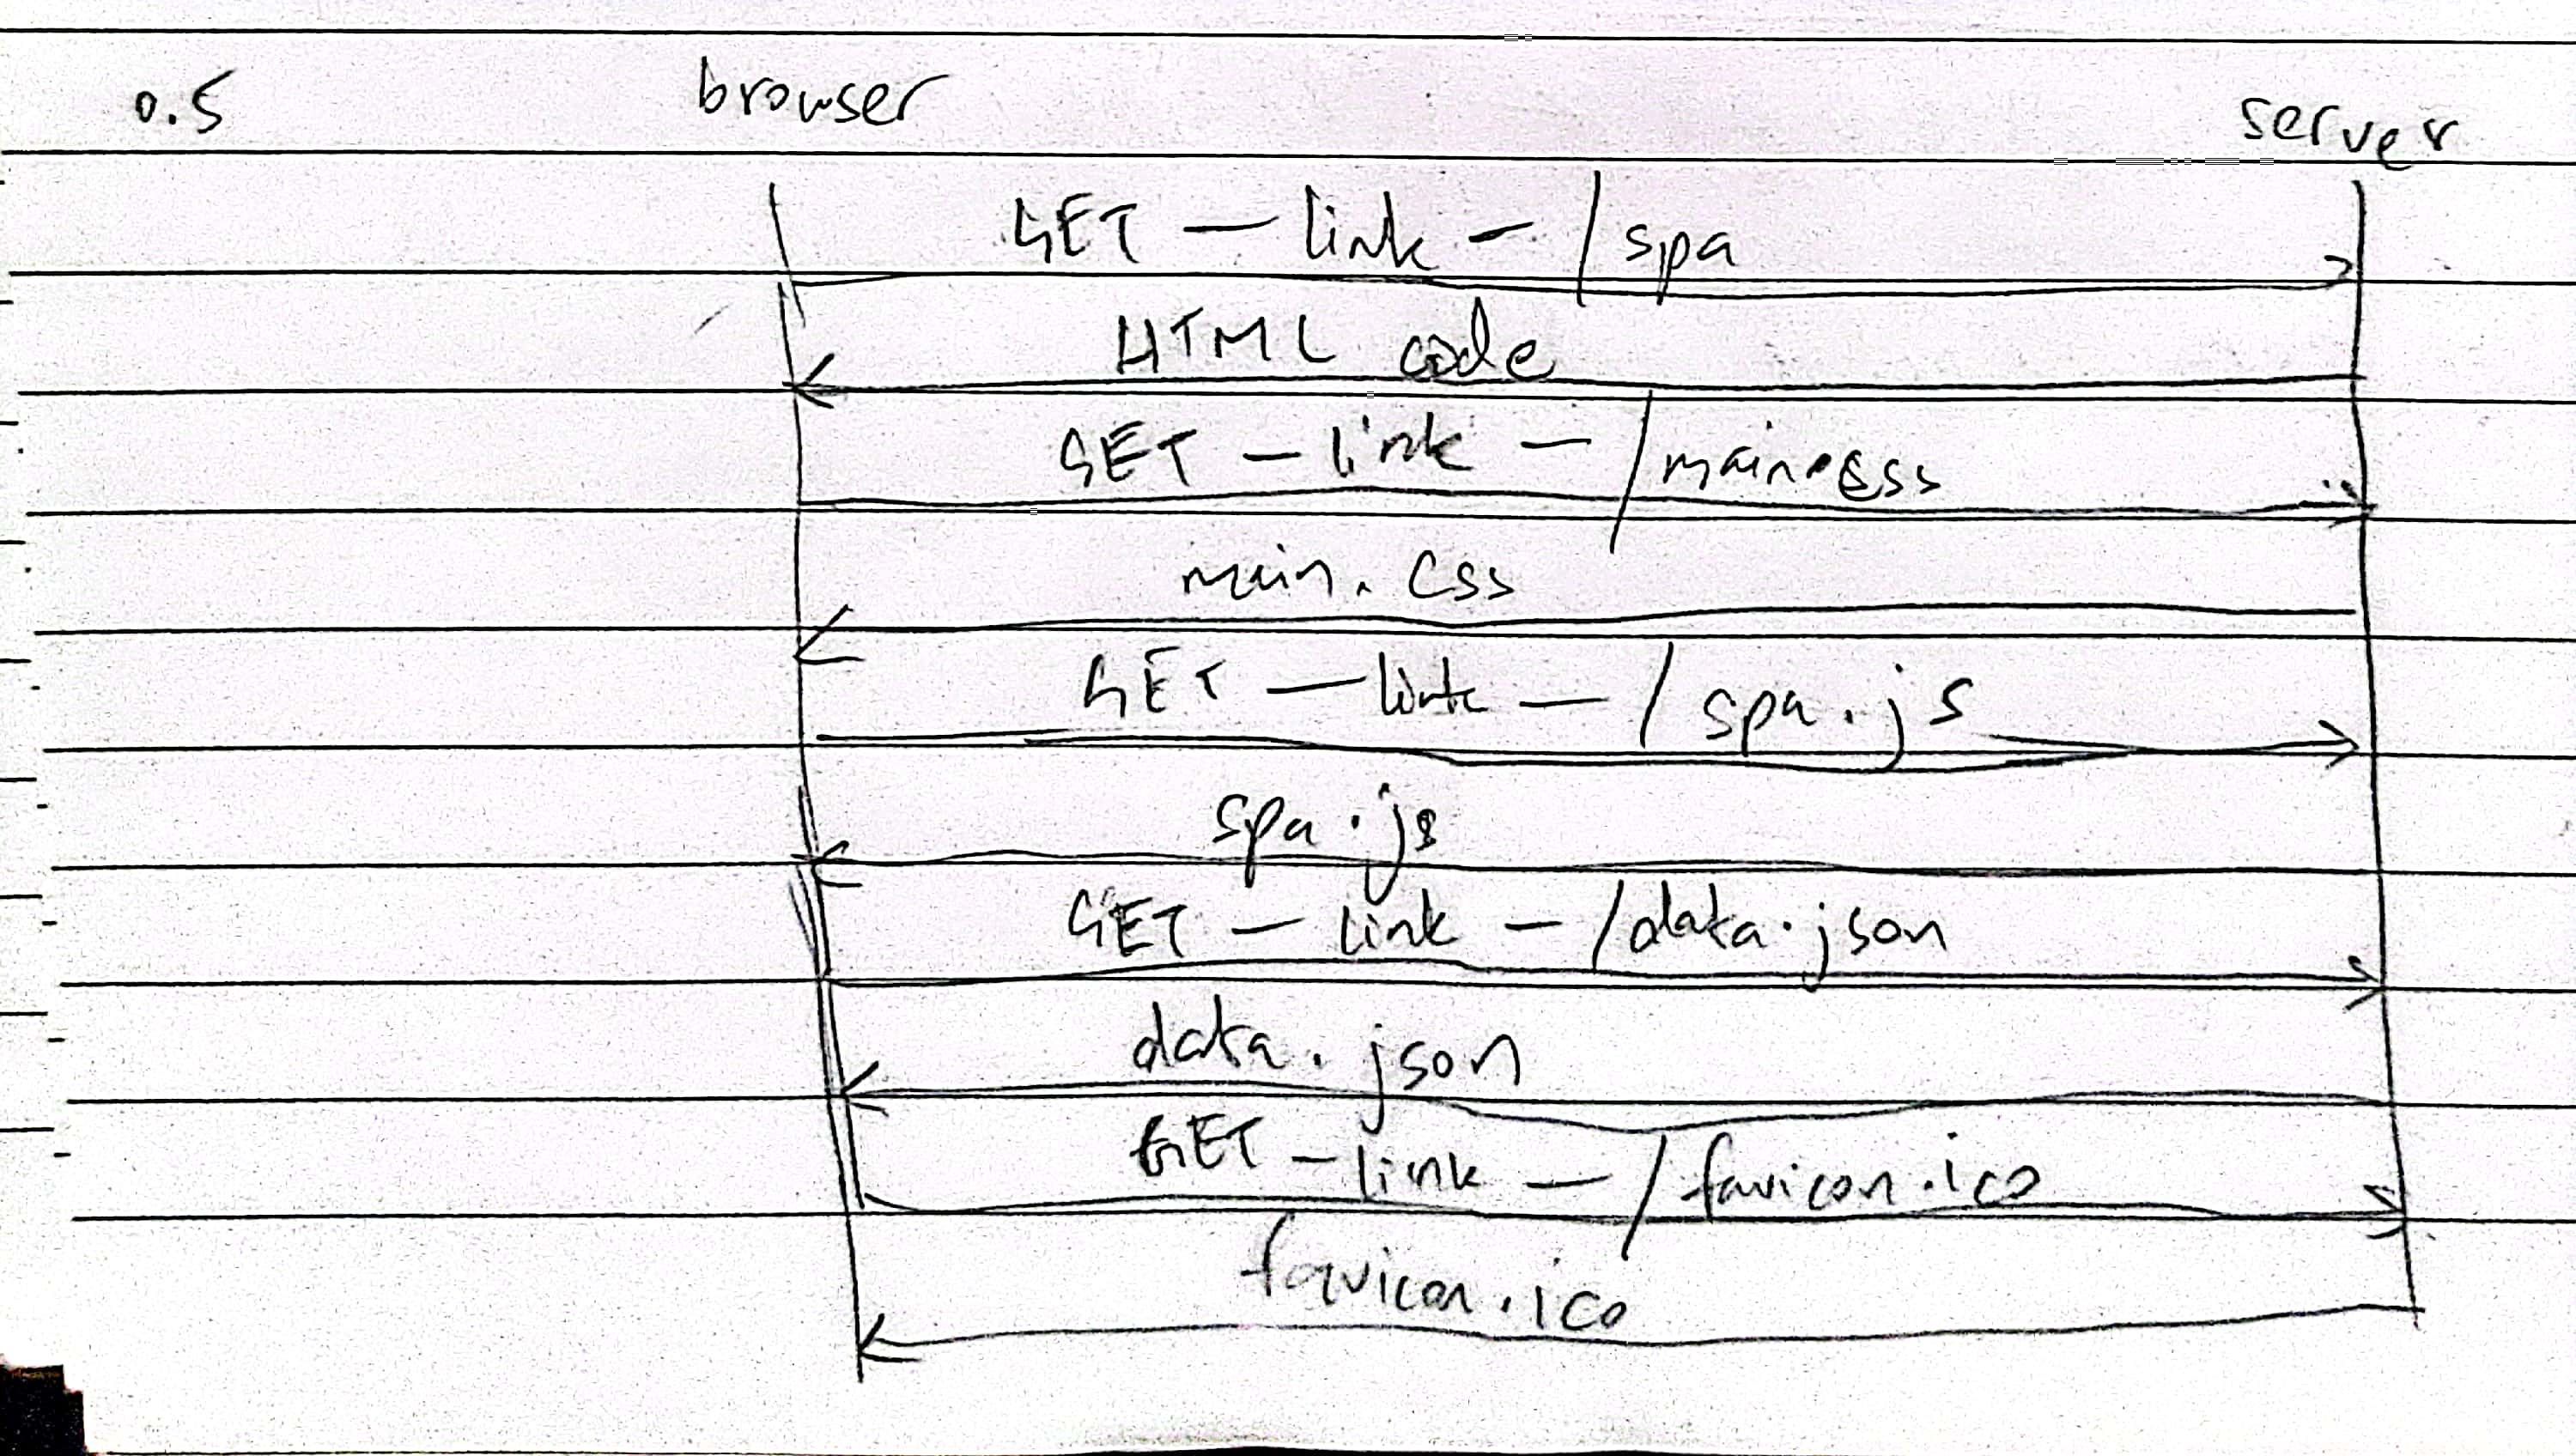 0.5 browser server
GET — link — /spa
HTML code
GET — link — /main.css
main.css
GET — link — /spa.js
spa.js
GET — link — /data.json
data.json
GET — link — /favicon.ico
favicon.ico